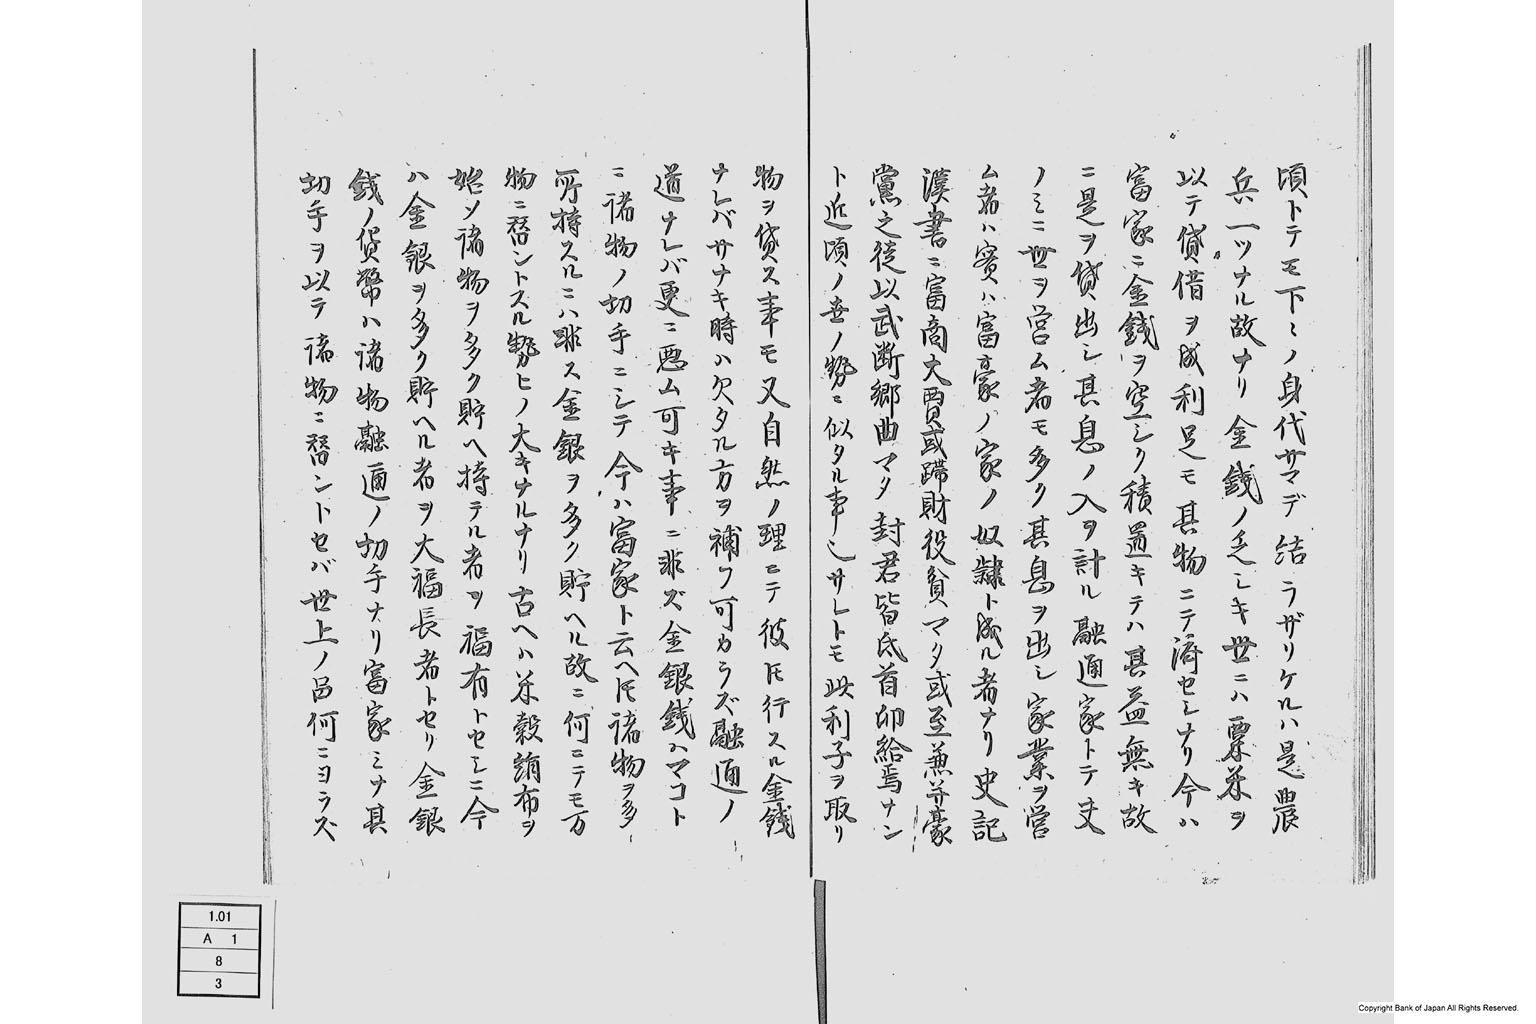 頃トテモ下〻ノ身代サマデ結ラザリケルハ是農
兵一ツナル故ナリ金銭ノ乏シキ世ニハ粟米ヲ
以テ貸借ヲ成利足モ其物ニテ済セシナリ今ハ
富家ニ金銭ヲ空シク積置キテハ其益無キ故
ニ是ヲ貸出シ其息ノ入ヲ計ル融通家トテ丈
ノミニ世ヲ営ム者モ多ク其息ヲ出シ家業ヲ営
ム者ハ実ハ富豪ノ家ノ奴隷ト成ル者ナリ史記
漢書ニ富商大賈或蹛財役貧マタ或至兼并豪
黨之徒以武断郷曲マタ封君皆氐首卬給焉ナン
ト近頃ノ世ノ勢ニ似タル事也サレトモ此利子ヲ取リ
物ヲ貸ス事モ又自然ノ理ニテ彼ヒ行スル金銭
ナレバサナキ時ハ欠タル方ヲ補フ可カラズ融通ノ
道ナレバ更ニ悪ム可キ事ニ非ズ金銀銭ハマコト
ニ諸物ノ切手ニシテ今ハ富家ト云ヘ𪜈諸物ヲ多
所持スルニハ非ス金銀ヲ多ク貯ヘル故ニ何ニテモ万
物ニ替ントスル勢ヒノ大キナルナリ古ヘハ米穀絹布ヲ
始ソ諸物ヲ多ク貯ヘ持テル者ヲ福有トセシニ今
ハ金銀ヲ多ク貯ヘル者ヲ大福長者トセリ金銀
銭ノ貨幣ハ諸物融通ノ切手ナリ富家ミナ其
切手ヲ以テ諸物ニ替ントセバ世上ノ品何ニヨラズ
1.01
A 1
8
3
Copyright Bank of Japan All Rights Reserved.